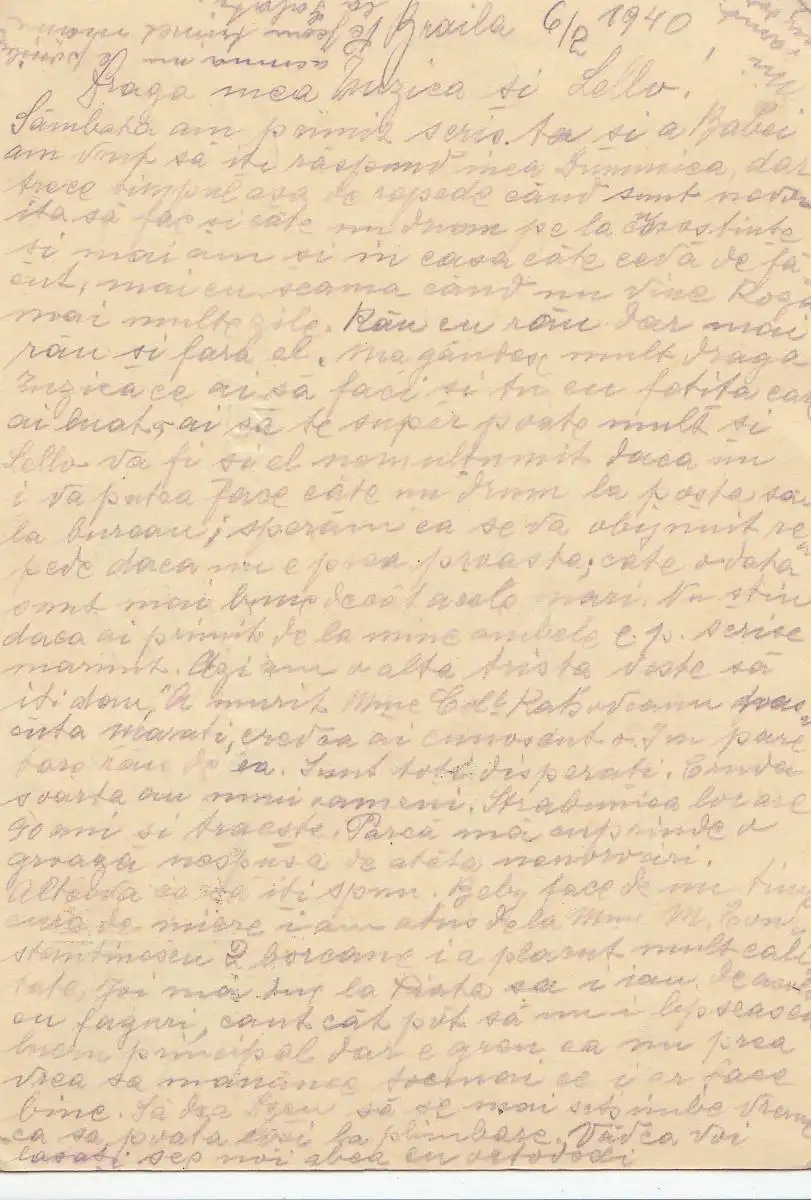 Braila 6/2 1940
Draga mea Zuzica si Lello!
Sâmbata am primit scris. ta si a Babei
am vrut să iti răspund inca Duminica, dar
trece timpul asa de repede când sunt nevo
ita să fac si câte un drum pe la
si mai am si in casa câte ceva de fă
cut, mai cu seama când nu vine
mai multe zile. Rău cu rău dar mai
rău si fara el. Ma gândesc mult draga
Zuzică ce ai să faci si tu cu fetita car
ai luat, ai să te superi poate mult si
Lello va fi si el nemultumit daca nu
i va putea face câte un drum la posta sau
la bureau; sperăm ca se va obijnuit re
pede daca nu e prea proasta; câte o data
sunt mai bune decât acele mari. Nu stiu
daca ai primit de la mine ambele c.p. scrise
marunt. Azi am o alta trista veste să
iti dau, "A murit Mme Col.
cuta, credca ai cunoscut o. Imi pare
tare rău de ea. Sunt toti disperati. Cruda
soarta au unii oameni. Strabunica lor are
90 ani si traeste. Parcă mă cuprinde o
groază nespusa de atâta nenorociri.
Altceva ce să iti spun. Beby face de un timp
cura de miere i am adus de la Mme M. Con
stantinescu 2 borcane i a placut mult cali
tate, Joi mă duc la Piata sa i iau de
cu faguri, caut cât pot să nu i lipseasca
lucru principal dar e greu ca nu prea
vrea sa manânce tocmai ce i ar face
bine. Să dea Dzeu să se mai schimbe vreme
ca sa poata esi la plimbare. Vădca voi